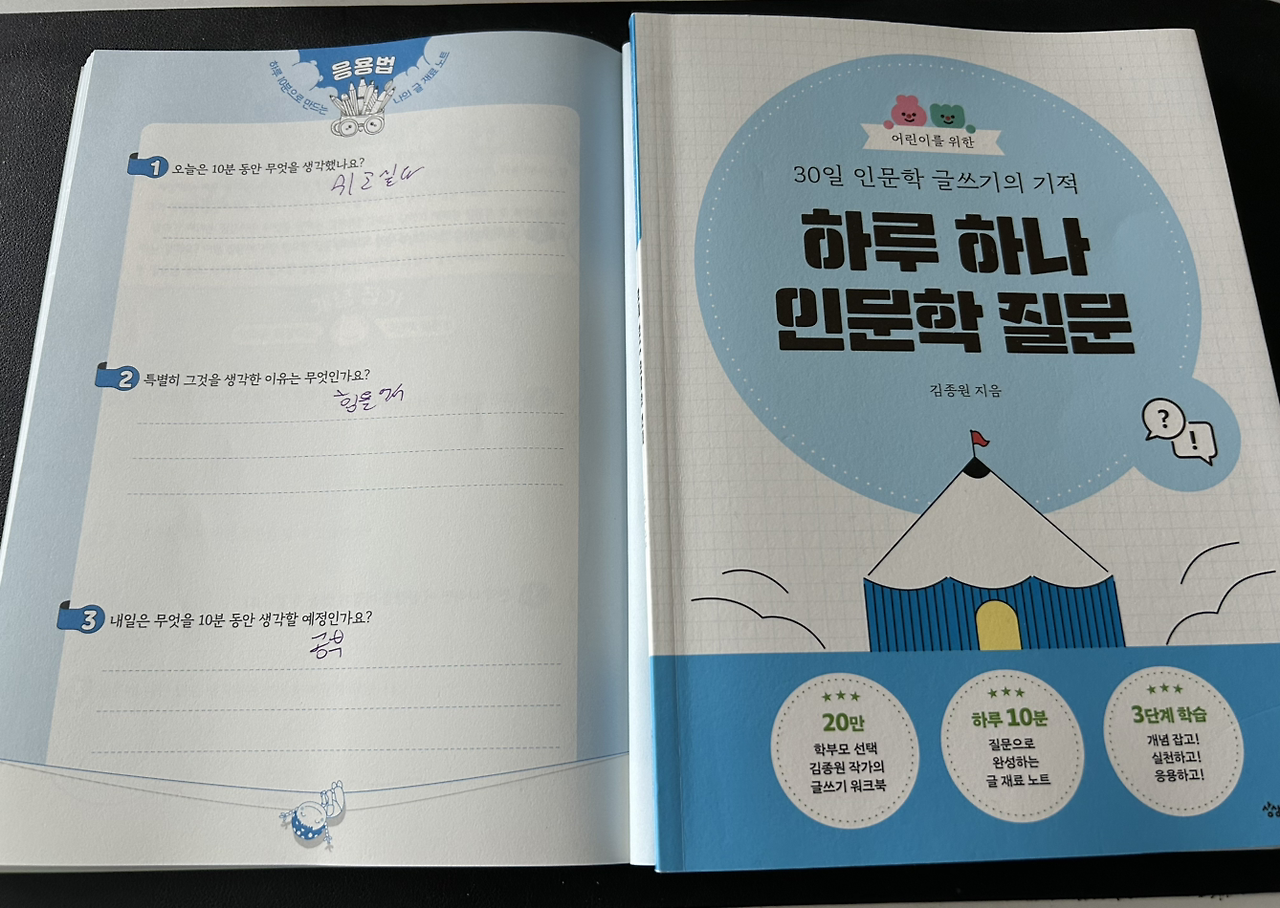 하루 10분으로 만드는
응용법
나의 글 재료 노트
1 오늘은 10분 동안 무엇을 생각했나요?
쉬고 싶다
2 특별히 그것을 생각한 이유는 무엇인가요?
힘들어서
3 내일은 무엇을 10분 동안 생각할 예정인가요?
공부
어린이를 위한
30일 인문학 글쓰기의 기적
하루 하나
인문학 질문
김종원 지음
?
!
★★★
20만
학부모 선택
김종원 작가의
글쓰기 워크북
★★★
하루 10분
질문으로
완성하는
글 재료 노트
★★★
3단계 학습
개념 잡고!
실천하고!
응용하고!